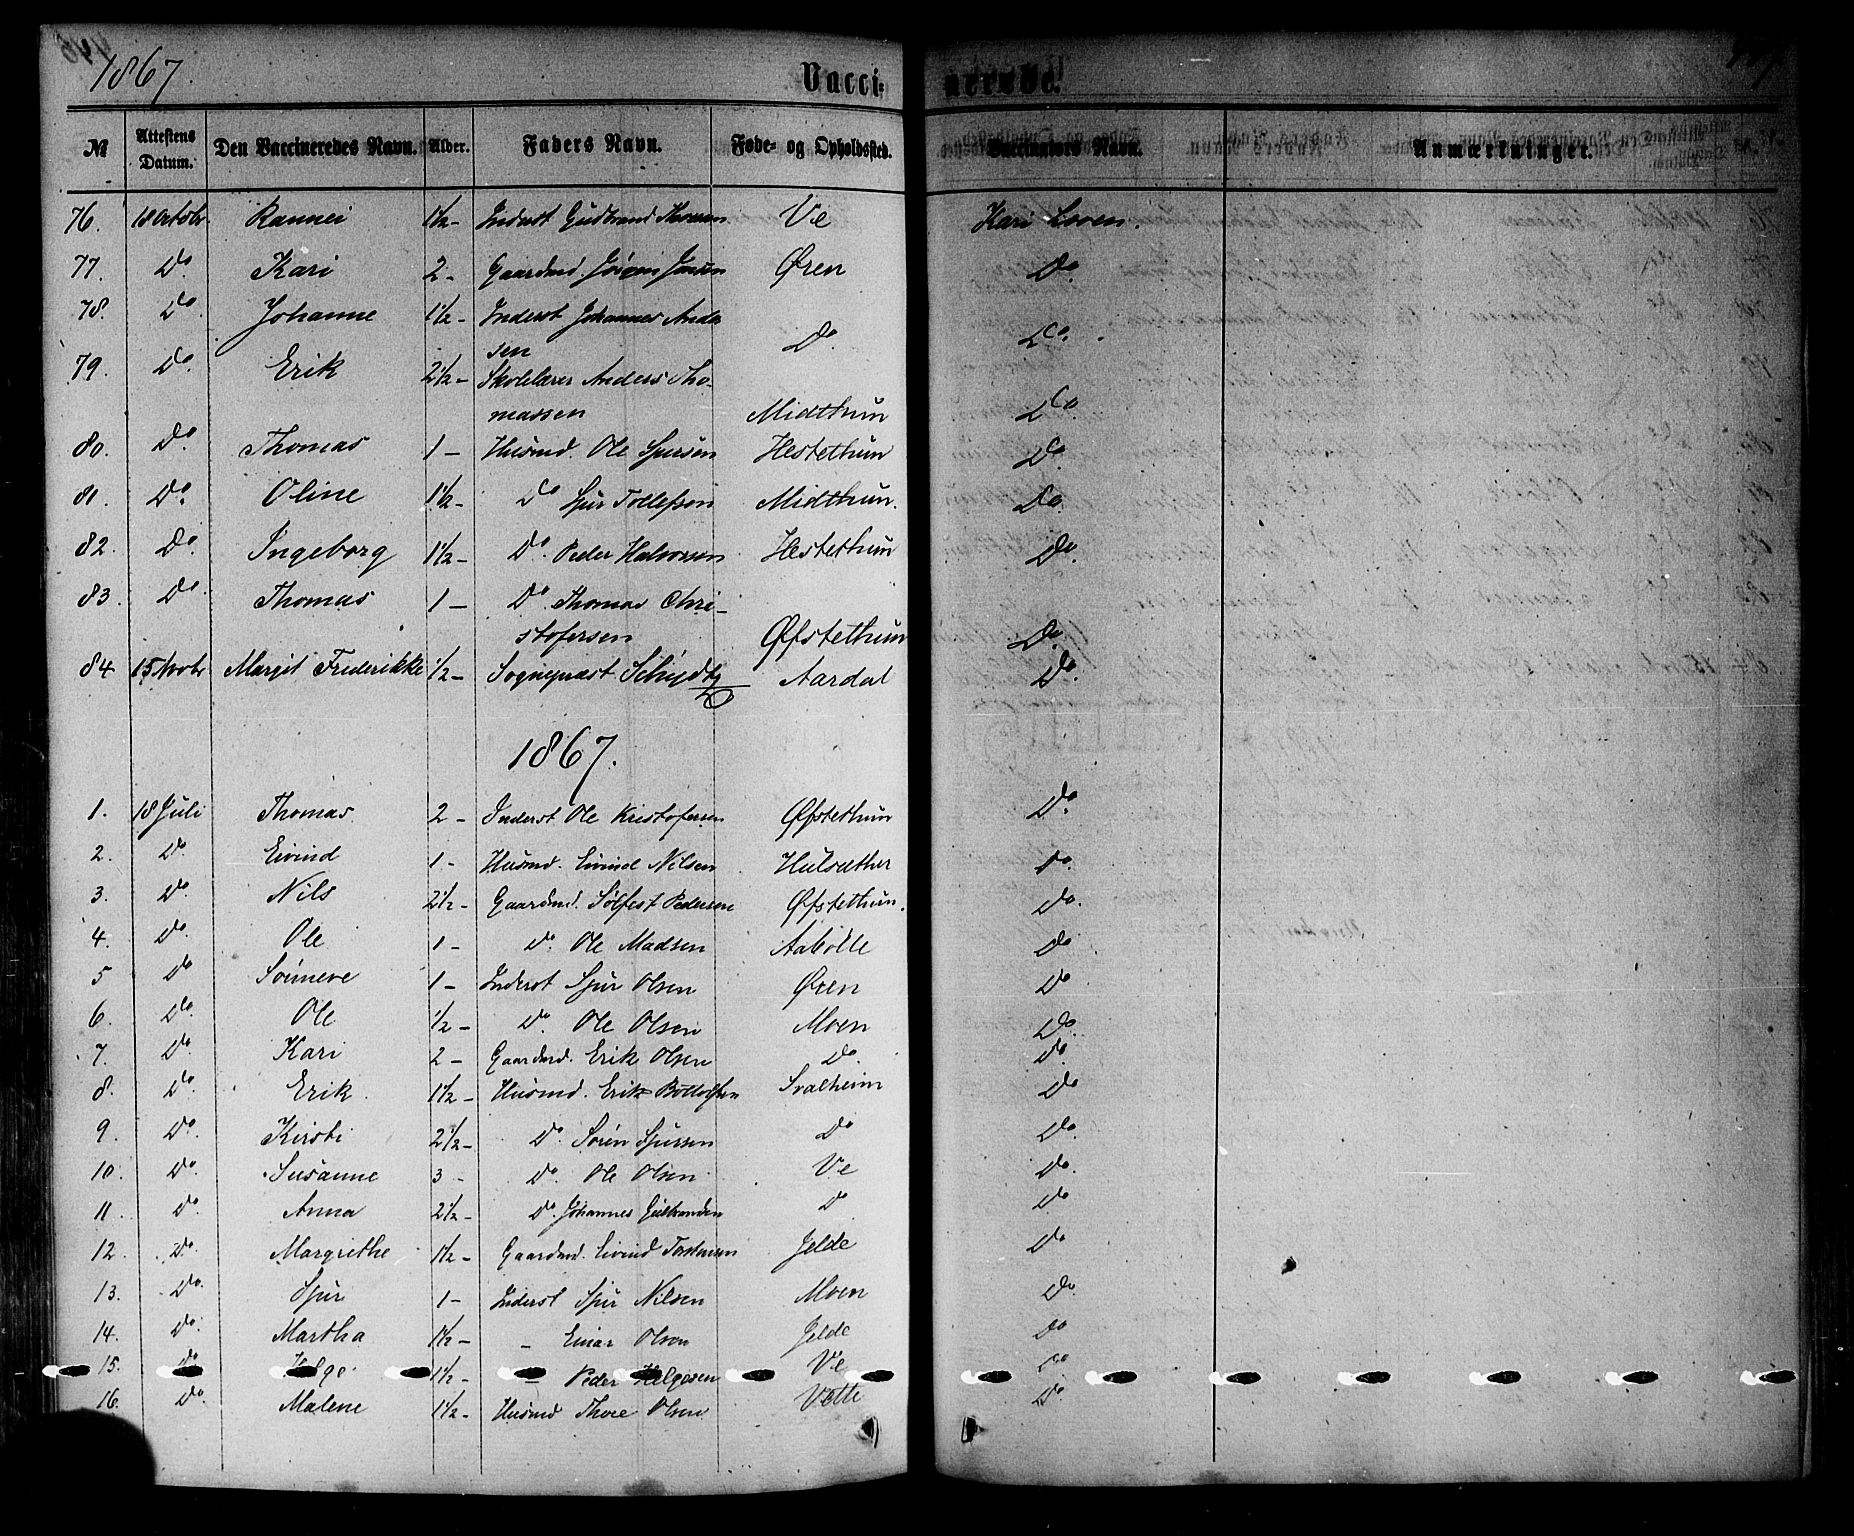 1867.
Vacci- nerede.
№ Attestens Datum. Den Vaccineredes Navn. Alder. Faders Navn. Føde- og Opholdssted. Vaccinators Navn. Anmærkninger.
76. 18 Octobr. Rannei 1½- Inderst Gudbrand Ve Kari Loven.
77. Do. Kari 2- Gaardmd. Jørgen Jensen Øren Do.
78. Do. Johanne 1½- Inderst Johannes Ander
sen Do. Do.
79. Do Erik 2½- Skolelærer Anders Tho-
massen Midtthun Do.
80. Do Thomas 1- Husmd. Ole Spursen Hestethun Do.
81. Do. Oline 1½- Do Spur Tollefsen Midtthun. Do.
82. Do. Ingeborg 1½- Do. Peder Halvorsen Hestethun Do.
83. Do. Thomas 1- Do. Thomas Chri-
stofersen Øfstethun Do.
84 15 Novbr Margit Frederikke ½- Sognepræst Aardal Do.
1867.
1. 18 Juli Thomas 2- Inderst Ole Kristofersen Øfstethun Do.
2. Do. Eivind 1- Husmd. Eivind Nilsen Hulsæther Do.
3. Do. Nils 2½- Gaardmd. Sølfest Pedersen Øfstethun. Do.
4. Do. Ole 1- Do. Ole Madsen Aabølle Do
5 Do Sønneve 1- Inderst Spur Olsen Øren Do
6. Do. Ole ½- Do. Ole Olsen Moen Do.
7. Do. Kari 2- Gaardmd. Erik Olsen Do. Do.
8. Do. Erik 1½- Husmd. Erik Bottolfsen Svalheim Do
9. Do. Kirsti 2½- Do. Søren Spursen Do Do.
10. Do. Susanne 3- Do. Ole Olsen Ve Do.
11. Do. Anna 2½- Do. Johannes Gulbrandsen Do Do
12. Do. Margrethe 1½- Gaardmd. Eivind Jelde Do
13. Do. Spur 1- Inderst Spur Nilsen Moen Do.
14. Do. Martha 1½- - Einar Olsen Jelde Do
15. Do Helge 1½- - Peder Helgesen Ve Do
16. Do. Malene 1½- Husmd Thore Olsen Vette Do.